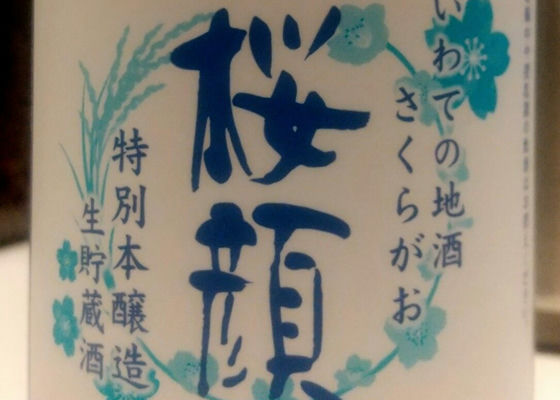 いわての地酒
さくらがお
桜顔
特別本醸造
生貯蔵酒